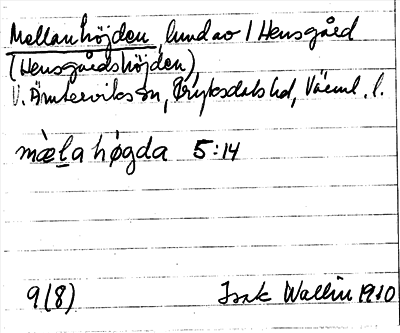 Mellanhöjden, lund av 1 Hensgård
(Hensgårdshöjden)
V. Ämterviks sn, Fryksdals hd, Värml. l.
mὲḷa høgda 5:14
9(8) Isak Wallin 1910